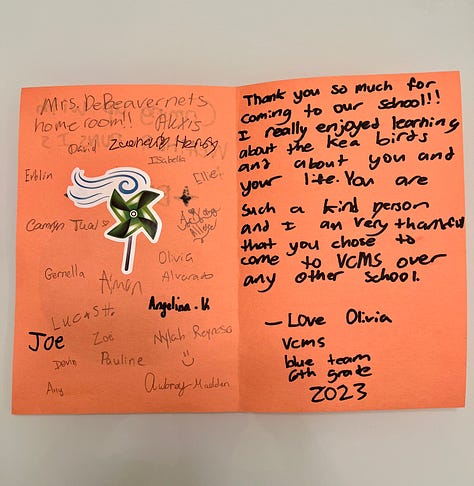 Mrs. DeBeavernets
homeroom!! Alexis
David Zachary Henry
Isabella
Elliet
Camryn Tual
Olivia
Alvarado
Gemella
Aman
Angelina.K
Lucas H.
JOE
Zoë
Nylah Reynoso
Devin
Pauline
Any
Aubrey Madden
Thank you so much for
coming to our school!!
I really enjoyed learning
about the Kea birds
and about you and
your life. You are
Such a kind person
and I am very thankful
that you chose to
come to VCMS over
any other school.
— Love Olivia
VCMS
blue team
6th grade
2023